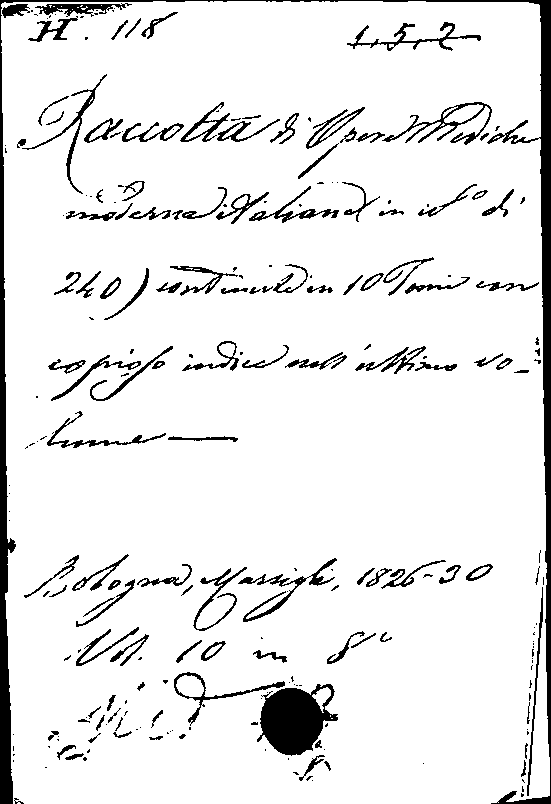 H. 118
1, 5, 2
Raccolta di Opere Mediche
moderne italiane (in nº di
240) contenute in 10 Tomi con
copioso indice nell'ultimo vo-
lume —
Bologna, Marsigli, 1826-30
Vol. 10 in 8º